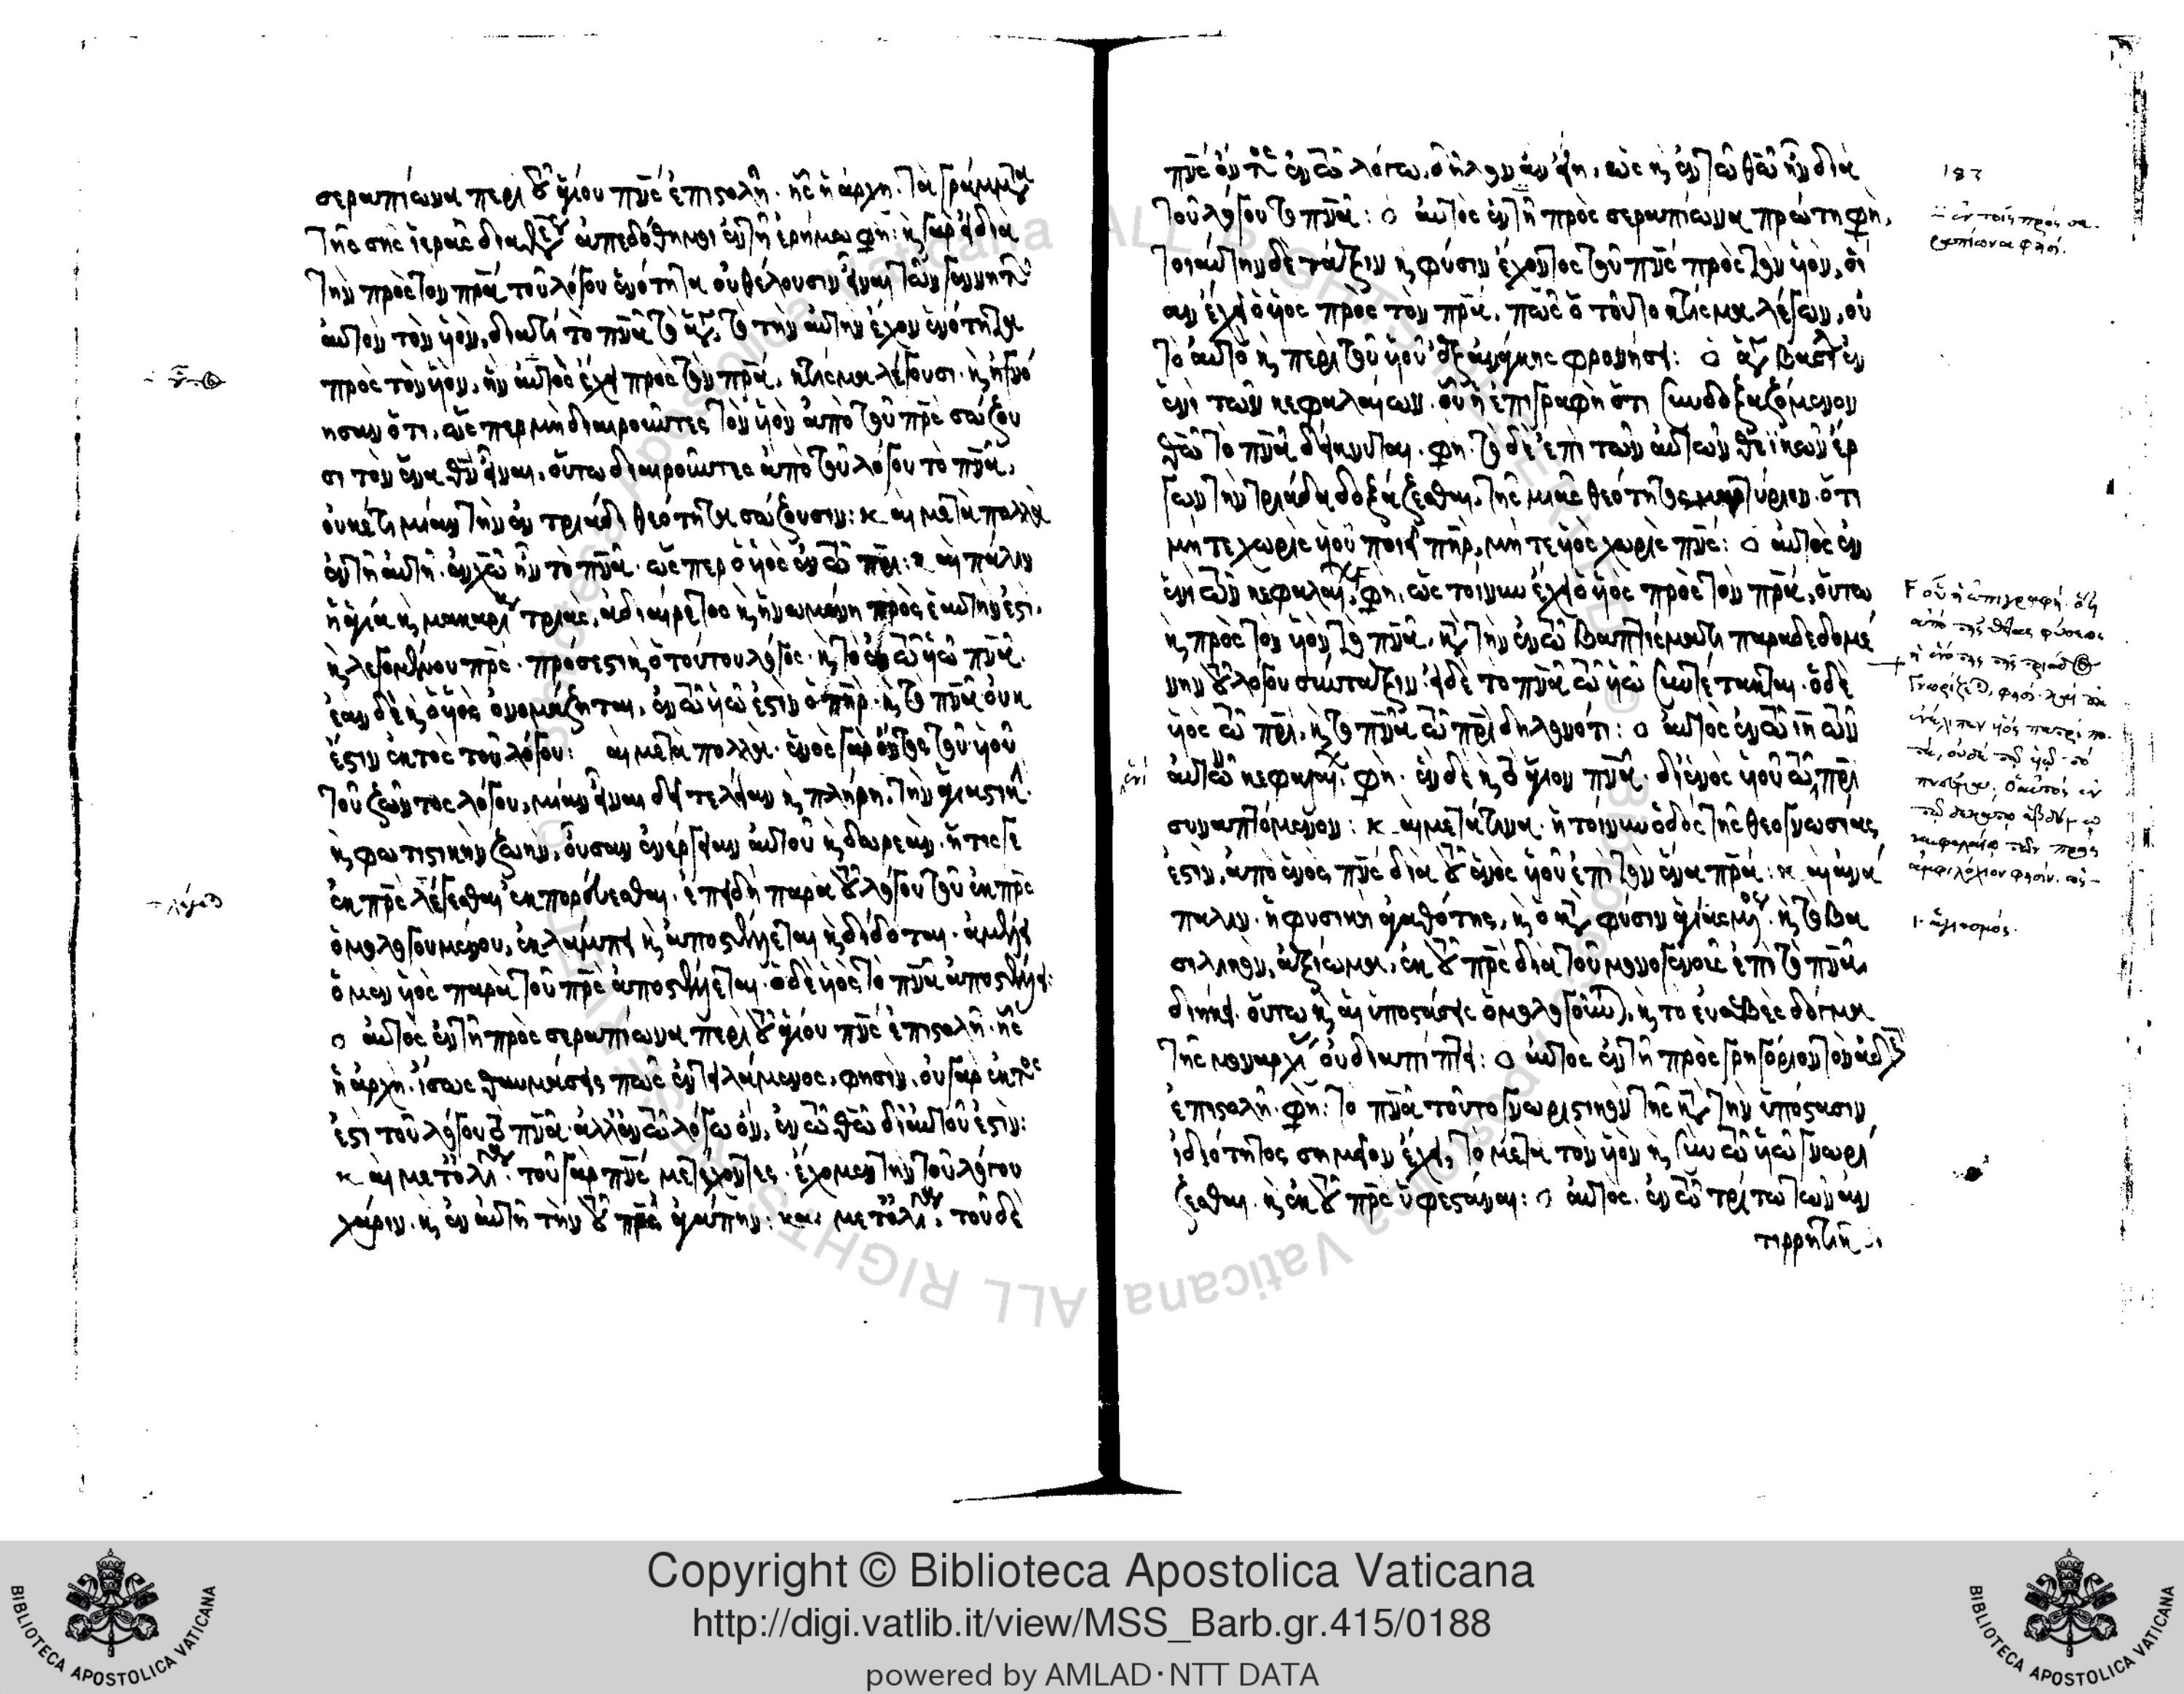 σεραπίωνα περὶ τοῦ ἁγίου πνς ἐπιστολῇ. ἧς ἡ ἀρχή. τὰ γράμματα
τῆς σῆς ἱερᾶς διαθέσεως ἀπεδόθη μοι ἐν τῇ ἐρήμω φη: καὶ γὰρ εἰ διὰ
τὴν πρὸς τὸν πρα τοῦ λόγου ἑνότητα οὐ θέλουσιν εἶναι τῶν γεννητῶν
αὐτὸν τὸν υἱὸν, διατί τὸ πνα τὸ ἅγιον, τὸ τὴν αὐτὴν ἔχον ἑνότητα
πρὸς τὸν υἱὸν, ἣν αὐτὸς ἔχει πρὸς τὸν πρα, κτίσμα λέγουσι. καὶ ἠγνό
ησαν ὅτι, ὥσπερ μὴ διαιροῦντες τὸν υἱὸν ἀπὸ τοῦ πρς σώζου
σι τὸν ἕνα θν εἶναι, οὕτω διαιροῦντες ἀπὸ τοῦ λόγου τὸ πνα,
οὐκέτι μίαν τὴν ἐν τριάδι θεότητα σώζουσιν: καὶ μετὰ πολλὰ
ἐν τῇ αὐτῇ. ἐν χω ἦν τὸ πνα. ὥσπερ ὁ υἱὸς ἐν τῶ πρι: καὶ πάλιν
ἡ ἁγία καὶ μακαρία τριὰς, ἀδιαίρετος καὶ ἡνωμένη πρὸς ἑαυτήν ἐστι.
καὶ λεγομένου πρς. πρόσεστι καὶ ὁ τούτου λόγος. καὶ τὸ ἐν τῶ υἱῶ πνα.
ἐὰν δὲ καὶ ὁ υἱὸς ὀνομάζηται, ἐν τῶ υἱῶ ἐστιν ὁ πηρ. καὶ τὸ πνα οὐκ
ἔστιν ἐκτὸς τοῦ λόγου: αι μετὰ πολλὰ. ἑνὸς γὰρ ὄντος τοῦ υἱοῦ
τοῦ ζῶντος λόγου, μίαν εἶναι δεῖ τελείαν καὶ πλήρη, τὴν ἁγιαστικὴν
καὶ φωτιστικὴν ζωὴν, οὖσαν ἐνέργειαν αὐτοῦ καὶ δωρεὰν. ἥτις γε
ἐκ πρς λέγεσθαι ἐκπορεύεσθαι. ἐπειδὴ παρὰ τοῦ λόγου τοῦ ἐκ πρς
ὁμολογουμένου, ἐκλάμπει καὶ ἀποστέλλεται καὶ δίδοται. ἀμέλει
ὁ μὲν υἱὸς παρὰ τοῦ πρς ἀποστέλλεται. ὁ δὲ υἱὸς τὸ πνα ἀποστέλλει:
ὁ αὐτὸς ἐν τῇ πρὸς σεραπίωνα περὶ τοῦ ἁγίου πνς ἐπιστολῇ. ἧς
ἡ ἀρχή. ἴσως θαυμάσεις πῶς ἐντειλάμενος, φησὶν. οὐ γὰρ ἐκτὸς
ἐστι τοῦ λόγου τὸ πνα. ἀλλ' ἐν τῶ λόγω ὂν, ἐν τῶ θῶ δι' αὐτοῦ ἐστὶν:
καὶ μετ' ὀλίγον. τοῦ γὰρ πνς μετέχοντες. ἔχομεν τὴν τοῦ λόγου
χάριν. καὶ ἐν αὐτῇ τὴν τοῦ πρς ἀγάπην: και μετ' ὀλίγον. τοῦ δὲ
πνς ὄντος ἐν τῶ λόγω, δῆλον ἂν εἴη, ὡς καὶ ἐν τῶ θῶ ἦν διὰ
τοῦ λόγου τὸ πνα: ὁ αὐτὸς ἐν τῇ πρὸς σεραπίωνα πρώτη φη,
τοιαύτην δὲ τάξιν καὶ φύσιν ἔχοντος τοῦ πνς πρὸς τὸν υἱὸν, οἵ
αν ἔχει ὁ υἱὸς πρὸς τὸν πρα, πῶς ὁ τοῦτο κτίσμα λέγων, οὐ
τὸ αὐτὸ καὶ περὶ τοῦ υἱοῦ ἐξ ἀνάγκης φρονήσει: ὁ ἅγιος βασίλειος ἐν
ἑνὶ τῶν κεφαλαίων. οὗ ἡ ἐπιγραφὴ ὅτι συνδοξαζόμενον
θῶ τὸ πνα δείκνυται. φη. τὸ δὲ ἐπὶ τῶν αὐτῶν θεϊκῶν ἔρ
γων τὴν τριάδα δοξάζεσθαι, τῆς μιᾶς θεότητος μαρτύριον. ὅτι
μήτε χωρὶς υἱοῦ ποιεῖ πηρ, μήτε υἱὸς χωρὶς πνς: ὁ αὐτὸς ἐν
ἑνὶ τῶν κεφαλαίων, φη, ὡς τοίνυν ἔχει ὁ υἱὸς πρὸς τὸν πρα, οὕτω
καὶ πρὸς τὸν υἱὸν τὸ πνα, κατὰ τὴν ἐν τῶ βαπτίσματι παραδεδομέ
νην τοῦ λόγου σύνταξιν. εἰ δὲ τὸ πνα τῶ υἱῶ συντέτακται. ὁ δὲ
υἱὸς τῶ πρι, καὶ τὸ πνα τῶ πρι δηλονότι: ὁ αὐτὸς ἐν τῶ ιη τῶν
αὐτῶν κεφαλαίων φη. ἓν δὲ καὶ τὸ ἅγιον πνα. δι' ἑνὸς υἱοῦ τῶ πρι
συναπτόμενον: καὶ μετά τινα. ἡ τοίνυν ὁδὸς τῆς θεογνωσίας,
ἐστὶν, ἀπὸ ἑνὸς πνς διὰ τοῦ ἑνὸς υἱοῦ ἐπὶ τὸν ἕνα πρα: καὶ ἀνά
παλιν. ἡ φυσικὴ ἀγαθότης, καὶ ὁ κατὰ φύσιν ἁγιασμὸς. καὶ τὸ βα
σιλικὸν, ἀξίωμα, ἐκ τοῦ πρς διὰ τοῦ μονογενοῦς ἐπὶ τὸ πνα,
διήκει. οὕτω καὶ αἱ ὑποστάσεις ὁμολογοῦνται, καὶ τὸ εὐσεβὲς δόγμα
τῆς μοναρχίας οὐ διαπίπτει: ὁ αὐτὸς ἐν τῇ πρὸς γρηγόριον τὸν ἀδελφὸν
ἐπιστολῇ. φη: τὸ πνα τοῦτο γνωριστικὸν τῆς κατὰ τὴν ὑπόστασιν
ἰδιότητος σημεῖον ἔχει, τὸ μετὰ τὸν υἱὸν καὶ σὺν τῶ υἱῶ γνωρί
ζεσθαι. καὶ ἐκ τοῦ πρς ὑφεστάναι: ὁ αὐτὸς. ἐν τῶ τρίτω τῶν ἀν
τιρρητικ
183
ἐν τοῖς πρὸς σε
ραπίωνα φησί.
οὗ ἡ ἐπιγραφή. ὅτι
ἀπὸ τῆς θείας φύσεως
ἁγιασμός.
Copyright © Biblioteca Apostolica Vaticana
http://digi.vatlib.it/view/MSS_Barb.gr.415/0188
powered by AMLAD·NTT DATA
BIBLIOTECA APOSTOLICA VATICANA
BIBLIOTECA APOSTOLICA VATICANA